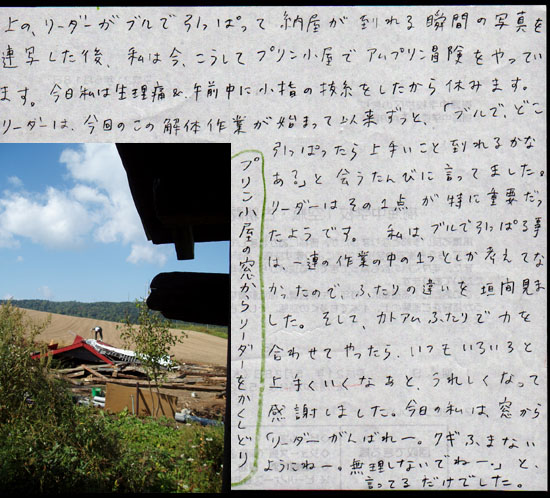 上の、リーダーがブルで引っぱって納屋が倒れる瞬間の写真を
連写した後、私は今、こうしてプリン小屋でアムプリン冒険をやってい
ます。今日私は生理痛&午前中に小指の抜糸をしたから休みます。
リーダーは、今回のこの解体作業が始まって以来ずっと、「ブルで、どこ
引っぱったら上手いこと倒れるかな
あ。」と会うたんびに言ってました。
リーダーはその1点が特に重要だっ
たようです。 私は、ブルで引っぱる事
は、一連の作業の中の1つとしか考えてな
かったので、ふたりの違いを垣間見ま
した。そして、カトアムふたりで力を
合わせてやったら、いつもいろいろと
上手くいくなぁと、うれしくなって
感謝しました。今日の私は、窓から
「リーダーがんばれー。クギふまない
ようにねー。無理しないでねー。」と、
言ってるだけでした。
プリン小屋の窓からリーダーをかくしどり